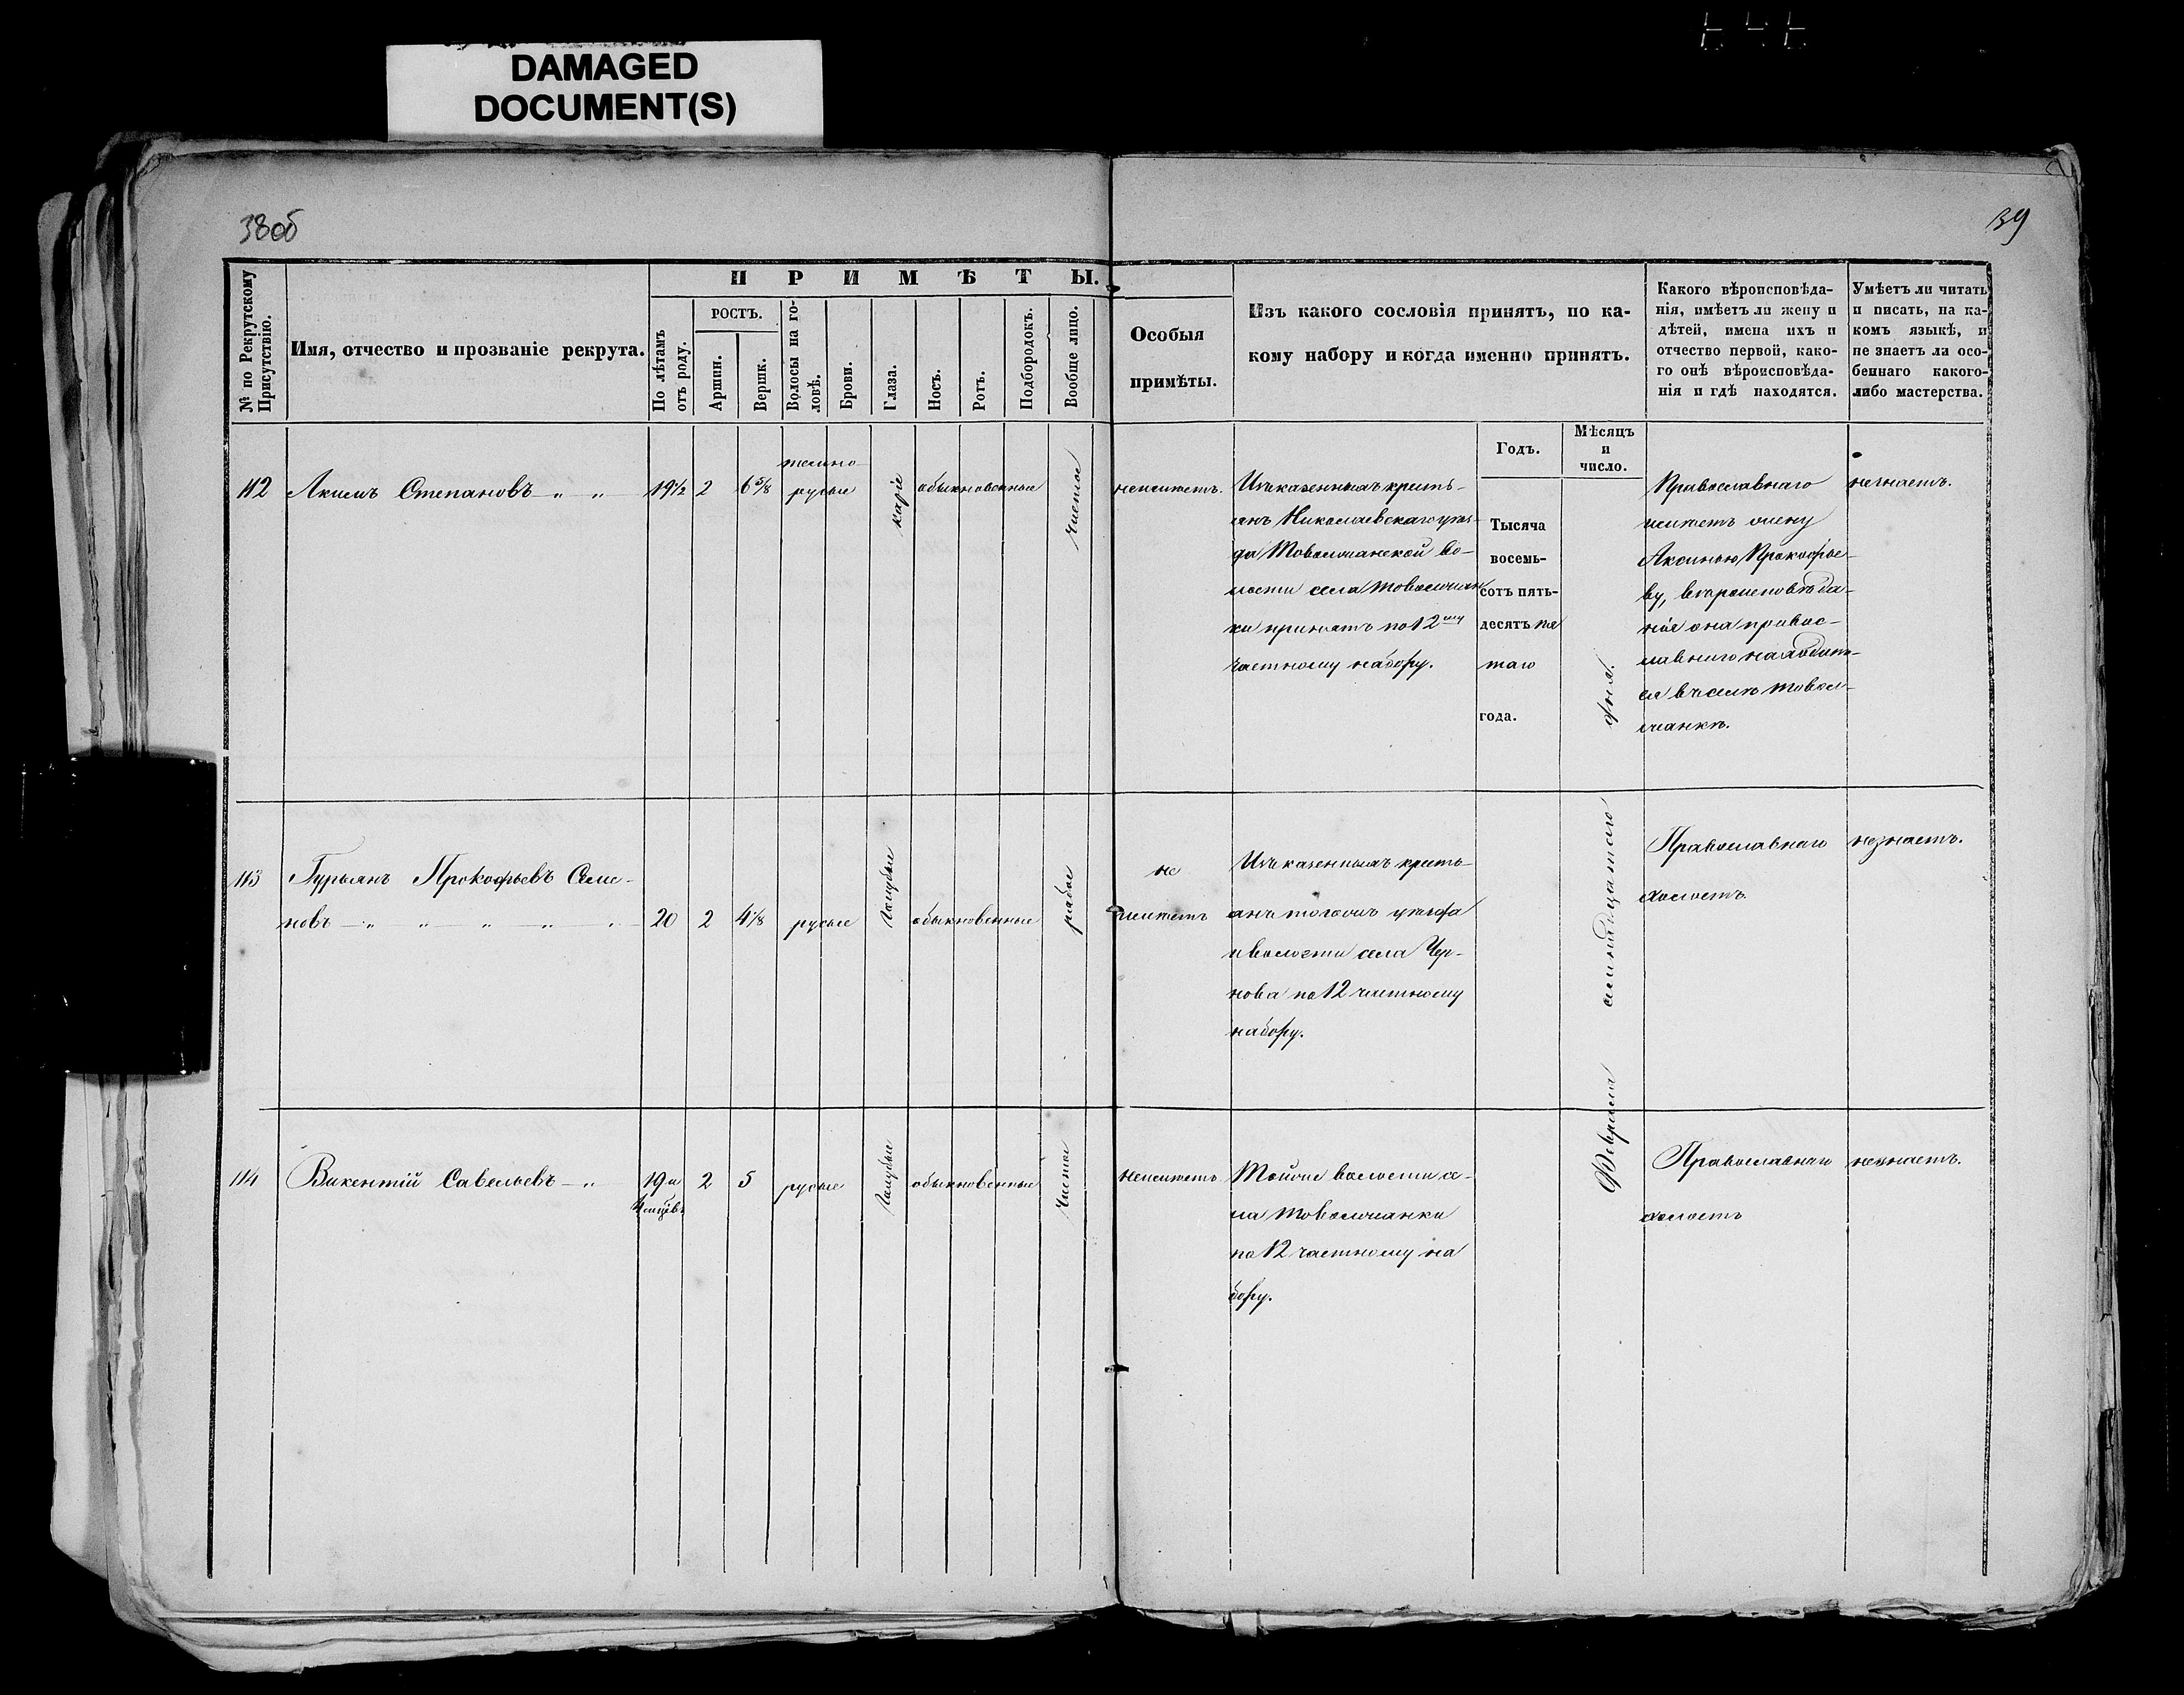 DAMAGED
DOCUMENT(S)
38об
39
№ по Рекрутскому
Присутствію.
Имя, отчество и прозваніе рекрута.
ПРИМѢТЫ.
По лѣтамъ
отъ роду.
РОСТЪ.
Аршин.
Вершк.
Волосы на го-
ловѣ.
Брови.
Глаза.
Носъ.
Ротъ.
Подбородокъ.
Вообще лицо.
Особыя
примѣты.
Изъ какого сословія принятъ, по ка-
кому набору и когда именно принятъ.
Годъ.
Мѣсяцъ
и
число.
Какого вѣроисповѣда-
нія, имѣетъ ли жену и
дѣтей, имена ихъ и
отчество первой, како-
го онѣ вѣроисповѣда-
нія и гдѣ находятся.
Умѣетъ ли читать
и писать, на ка-
комъ языкѣ, и
не знаетъ ли осо-
беннаго какого-
либо мастерства.
112
Акимъ Степановъ — „ „
19 1/2
2
6 5/8
темно-
русые
каріе
обыкновенные
чистое
неимѣетъ.
Изъ казенныхъ кресть-
янъ Николаевскаго уѣз-
да Товолжанской во-
лости села Товолжан
ки принятъ по 12му
частному набору.
Тысяча
восемь-
сотъ пять-
десятъ пя
таго
года.
Февраля семнадцатаго дня.
Православнаго
имѣетъ жену
Аксинью Прокофье-
ву, вѣроисповѣда-
нія она правос-
лавнаго находит-
ся въ селѣ Товол-
жанкѣ.
незнаетъ.
113
Гурьянъ Прокофьевъ Семе-
новъ — „ „ „ „ „
20
2
4 1/8
русые
голубые
обыкновенные
рябое
не
имѣетъ
Изъ казенныхъ кресть-
янъ тогожъ уѣзда
и волости села Чер-
нова по 12 частному
набору.
Православнаго
холостъ.
незнаетъ.
114
Викентій Савельевъ — „
19 и
4 мѣсяцѣв
2
5
русые
голубые
обыкновенные
чистое
неимѣетъ
Тойже волости се-
ла Товолжанки
по 12 частному на
бору.
Православнаго
холостъ
незнаетъ.